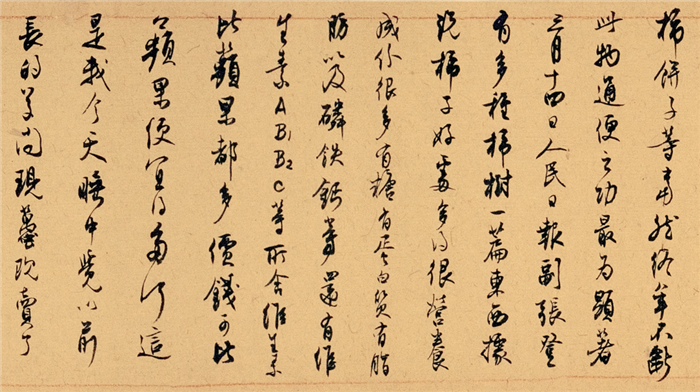 柿餅子等終年不斷
此物通便之功最为顯著
三月十四日人民日報副張登
有多種柿樹一篇東西據
説柿子好處多得很營養
成份很多有糖有蛋白質有脂
肪以及磷鉄鈣等還有維
生素AB1B2C等所含維生素
比蘋果都多價錢可比
蘋果便宜得多了這
是我今天睡中覺以前
長的学问現躉现賣了